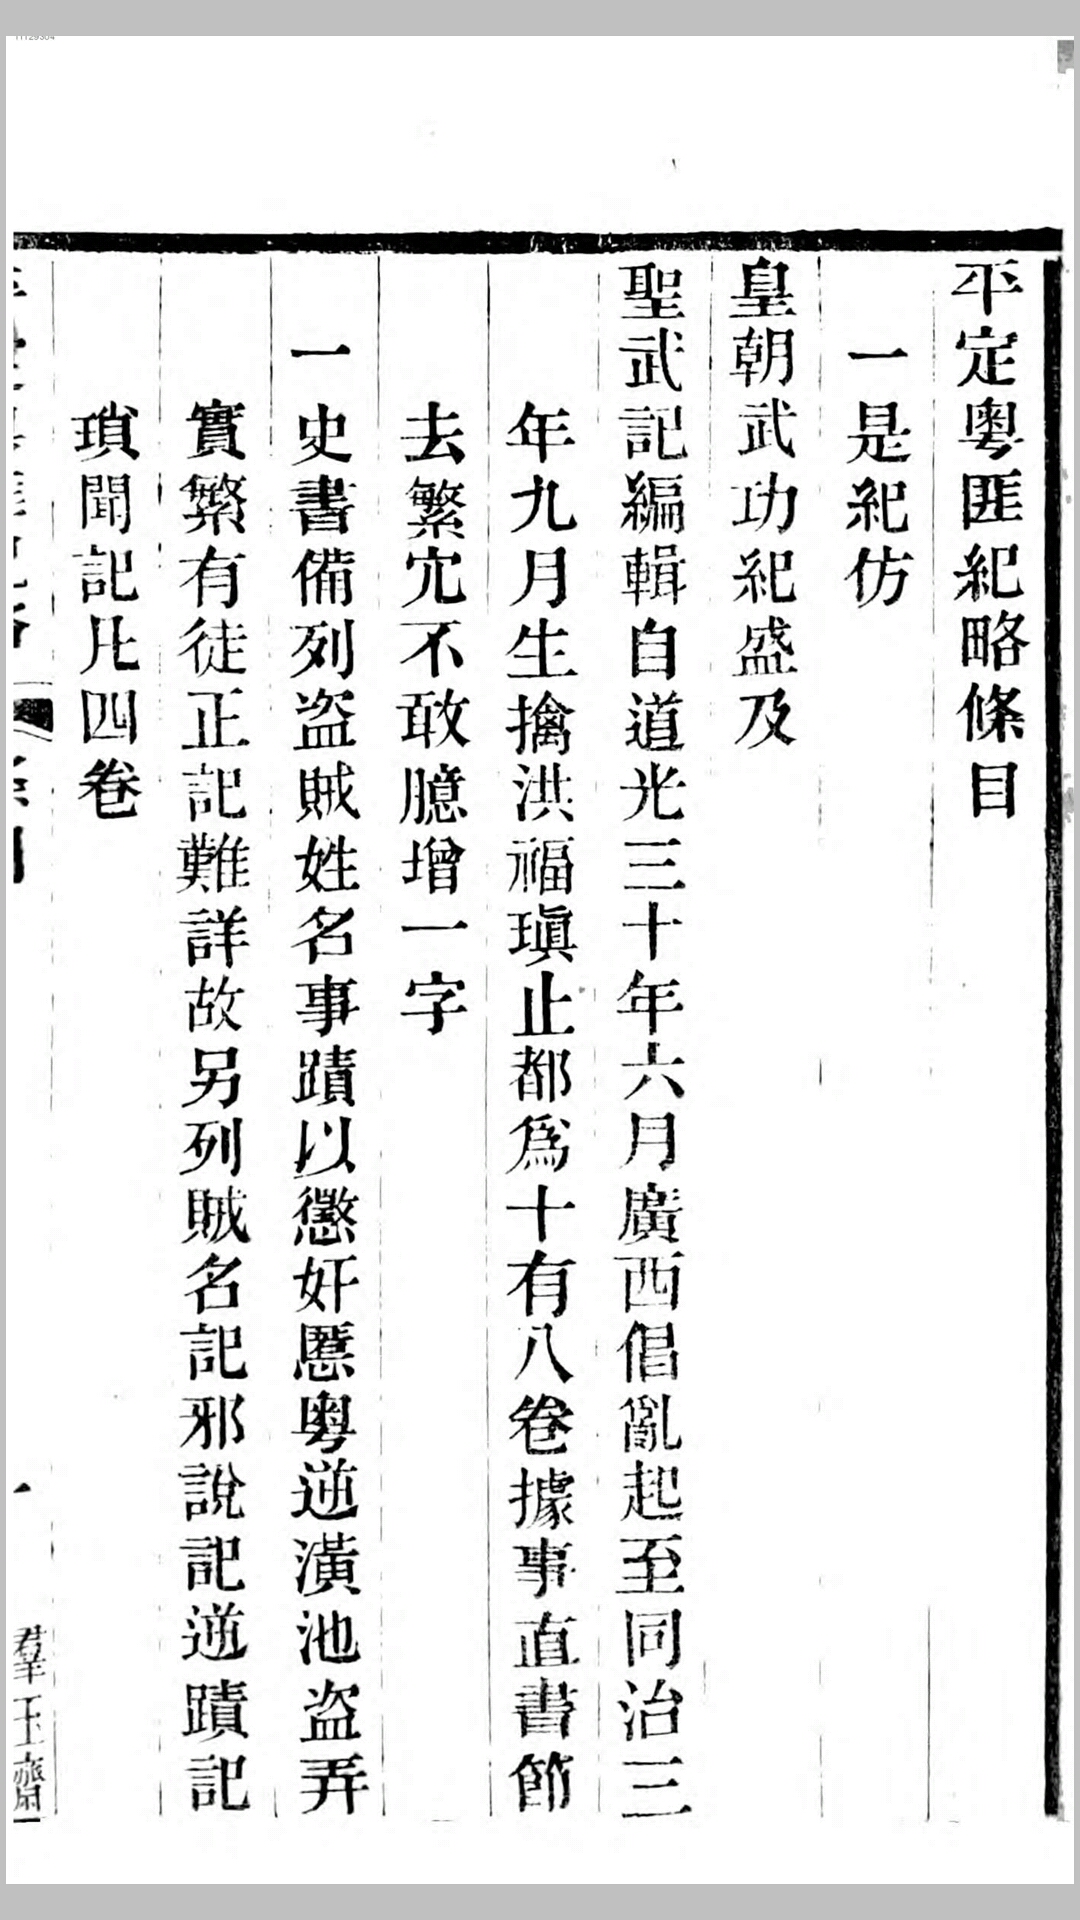 平定粵匪紀略條目
一是紀仿
皇朝武功紀盛及
聖武記編輯自道光三十年六月廣西倡亂起至同治三
年九月生擒洪福瑱止都爲十有八卷據事直書節
去繁冗不敢臆增一字
一史書備列盜賊姓名事蹟以懲奸慝粵逆潢池盜弄
實繁有徒正記難詳故另列賊名記邪說記逆蹟記
瑣聞記凡四卷
羣玉齋